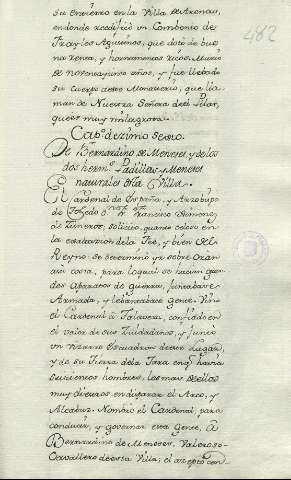 su entierro en la Villa de Arenas,
en donde reedificó un Combento de
Frayles Agustinos, que dotó de bue
na renta, y hornamentos ricos. Murió
de noventa y ocho años, y fue llebado
su cuerpo a este Monasterio, que lla
man de Nuestra Señora del Pilar,
que es muy milagrosa.
482
Capº. dezimo sesto.
De Bernardino de Meneses, y de los
dos hermºs. Padillas, y Meneses
naturales desta Villa.
El Cardenal de España, y Arzobispo
de Toledo Dn. Fr. Francisco Ximenez
de Zisneros, solicito, quanto celoso en
la exaltacion de la Fee, y bien del
Reyno, se determinó yr sobre Oran
a su costa, para lo qual se hacian gran
des aparatos de guerra, juntabase
Armada, y lebantabase gente. Vino
el Cardenal a Talavera, confiado en
el valor de sus Ciudadanos, y juntó
un vizarro Escuadron de este Lugar,
y de su Tierra de la Jara en q. havia
setecientos hombres, los mas de ellos
muy diestros en disparar el Arco, y
Alcabuz. Nombró el Cardenal, para
conducir, y governar esta gente, a
Bernardino de Meneses, Valeroso
Cavallero de esta Villa, el aceptó con